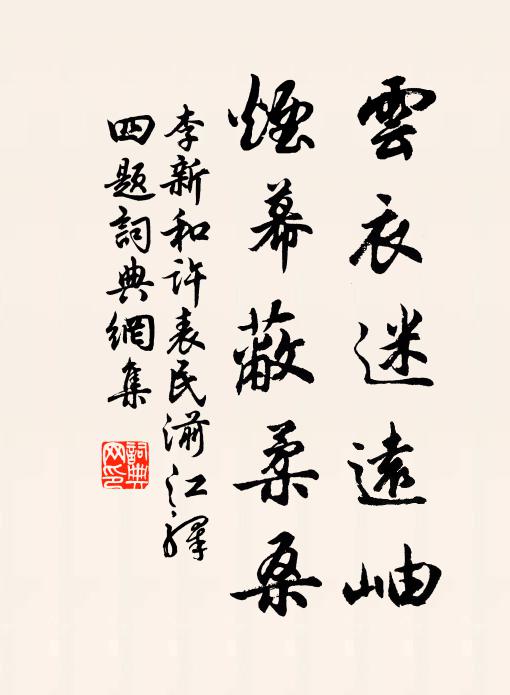 雲衣迷遠岫
煙幕蔽柔桑
李新和許表民湔江驛
四题詞典網集
詞典
网印